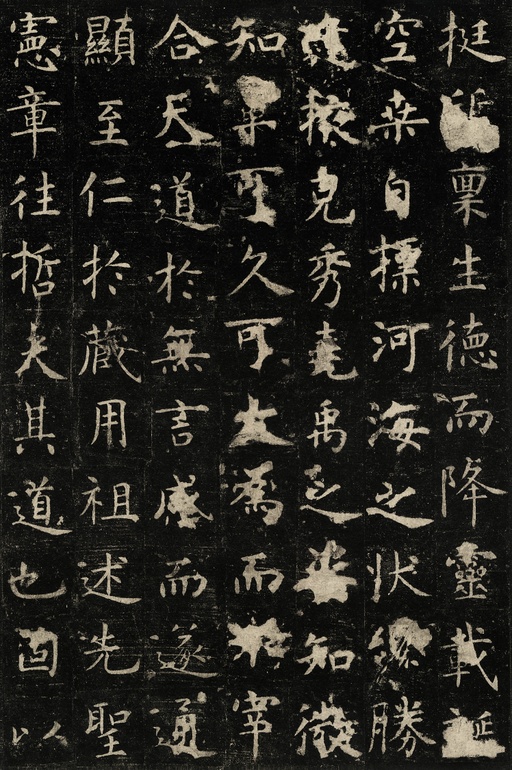 挺稟生德而降靈載誕
空桒自摽河海之狀纔勝
掖克秀堯禹之知微
知章可久可大為而不宰
合天道於無言感而遂通
顯至仁於藏用祖述先聖
憲章往哲夫其道也固以